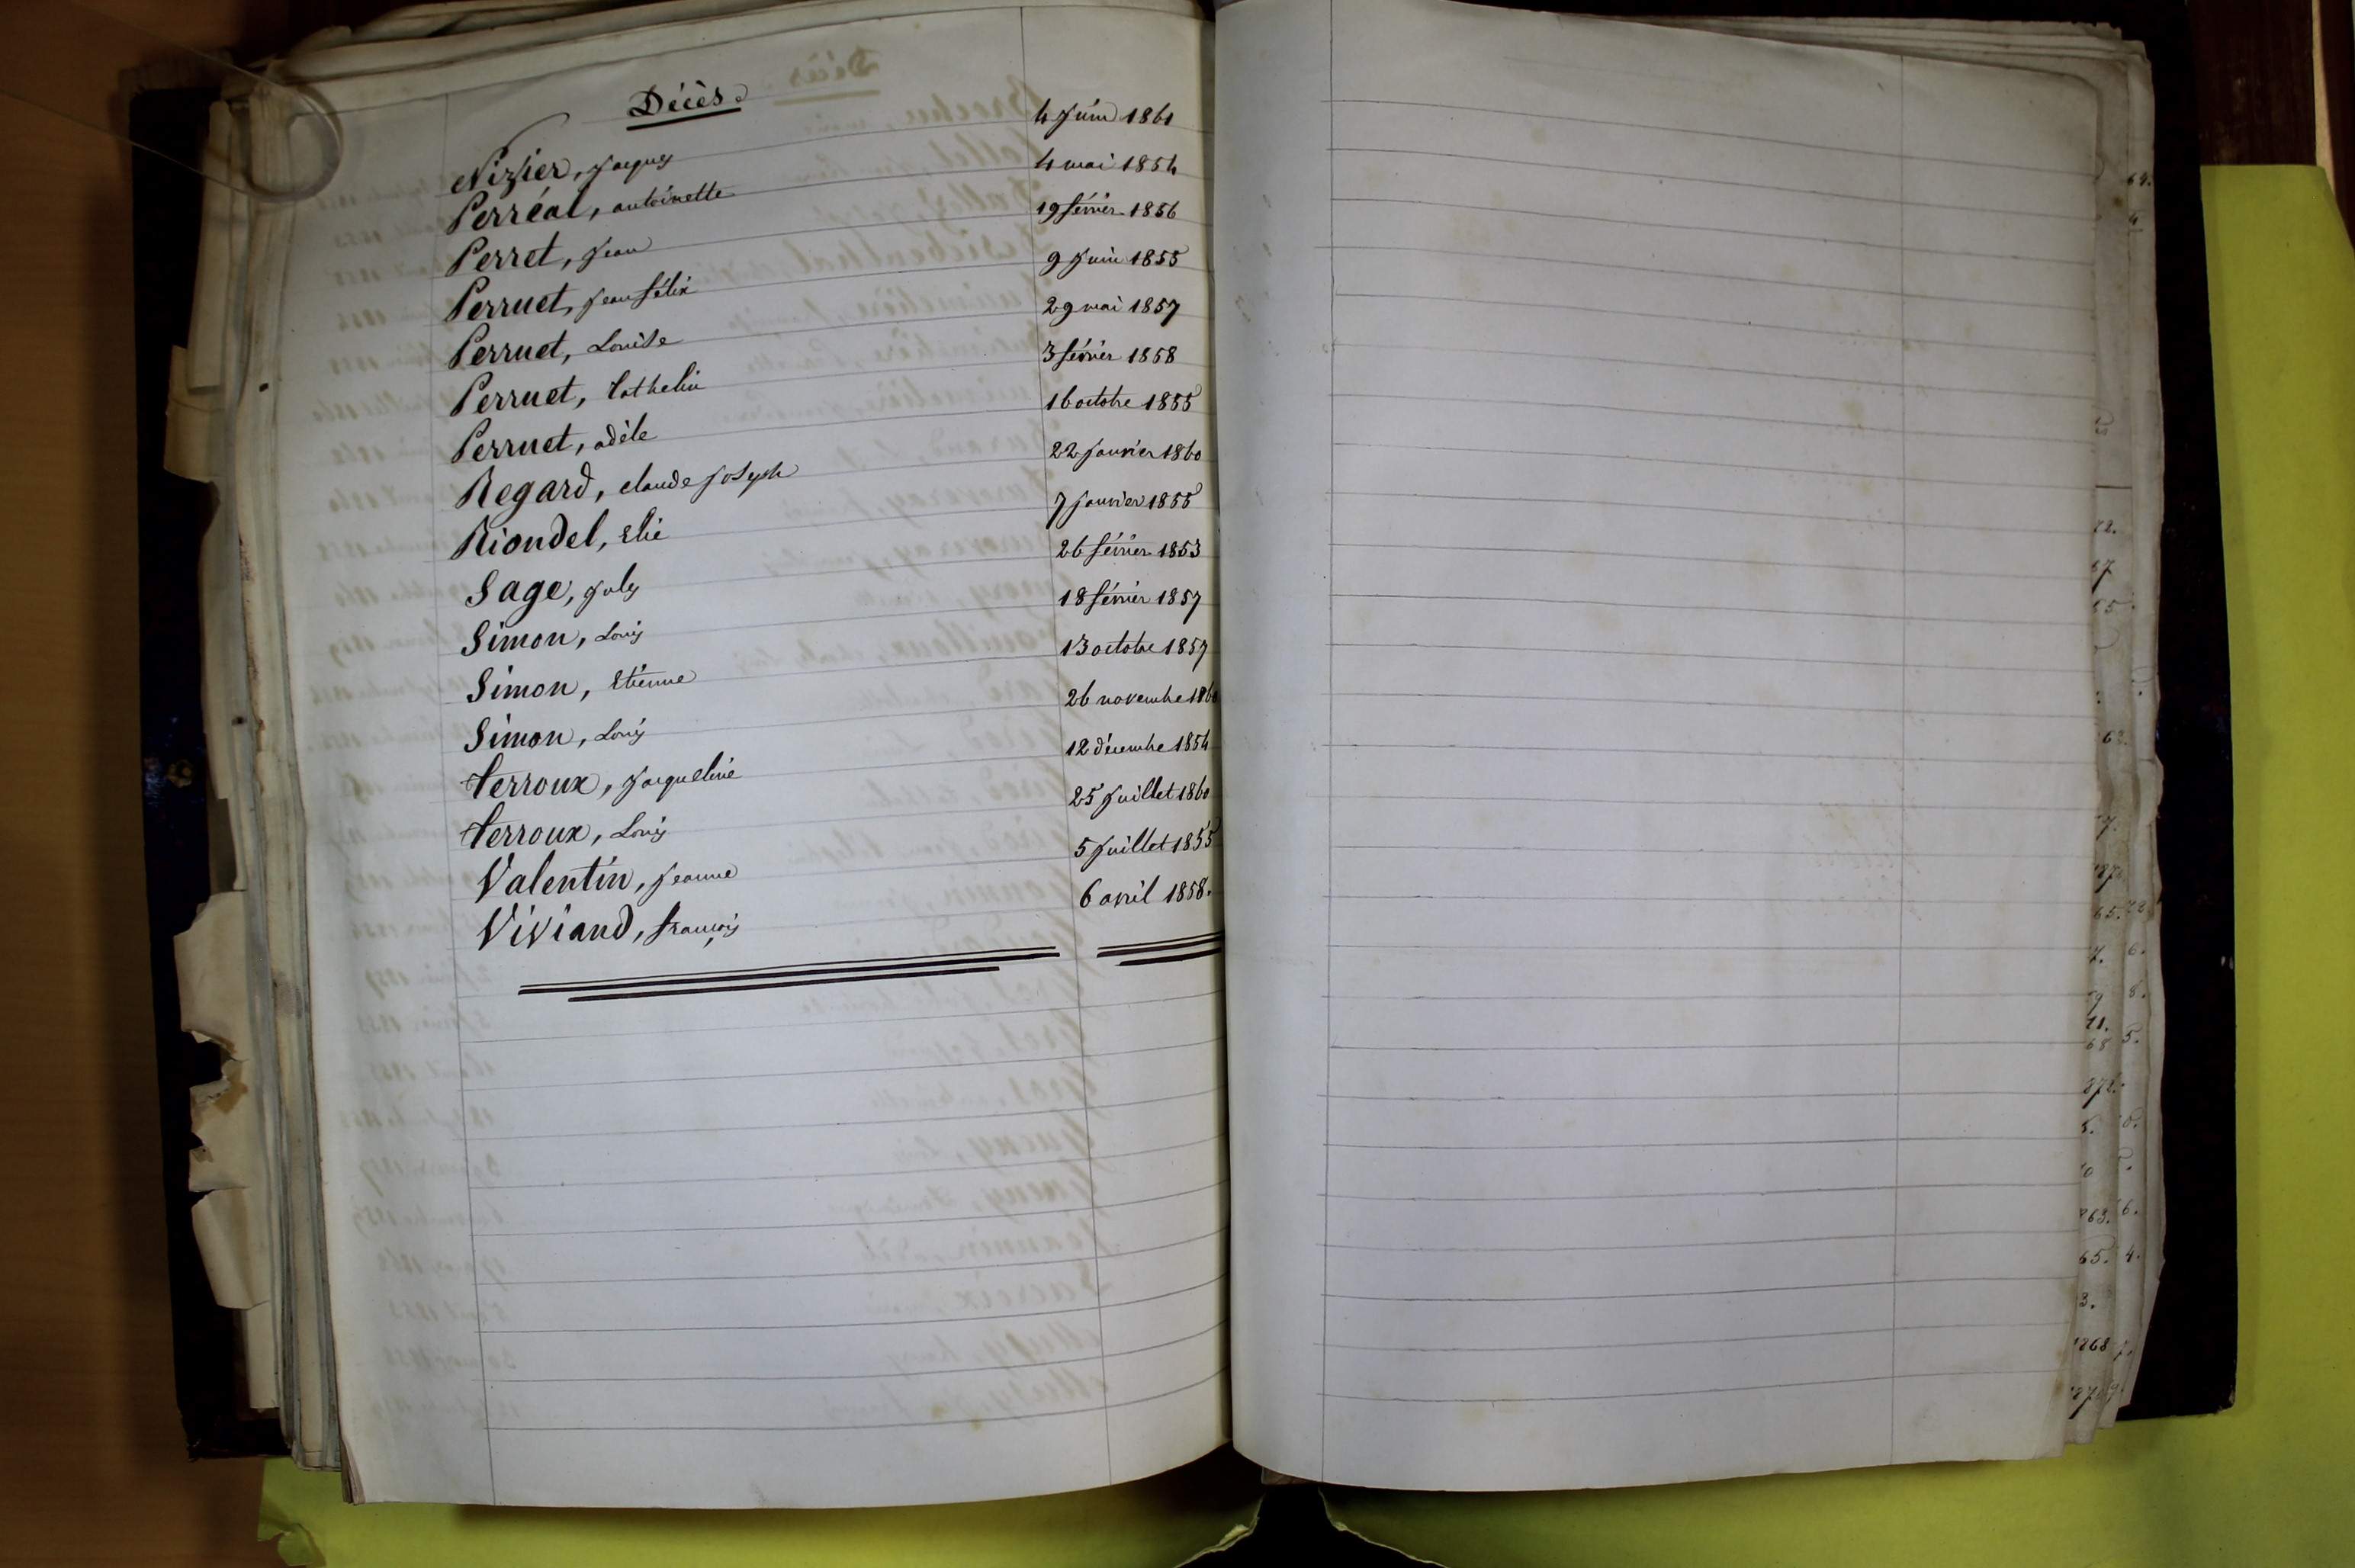 Décès.
Nizier, Jacques 4 Juin 1861
Perréal, antoinette 4 mai 1854
Perret, Jean 19 février 1856
Perruet, Jean félix 9 Juin 1855
Perruet, Louise 29 mai 1857
Perruet, Cathelin 3 février 1858
Perruet, adèle 16 octobre 1855
Regard, claude Joseph 22 Janvier 1860
Riondel, Elie 7 Janvier 1855
Sage, Jules 26 février 1853
Simon, Louis 18 février 1857
Simon, Etienne 13 octobre 1857
Simon, Louis 26 novembre
Terroux, Jacqueline 12 décembre 1854
Terroux, Louis 25 Juillet 1860
Valentin, Jeanne 5 Juillet 1855
Viviand, françois 6 avril 1858.